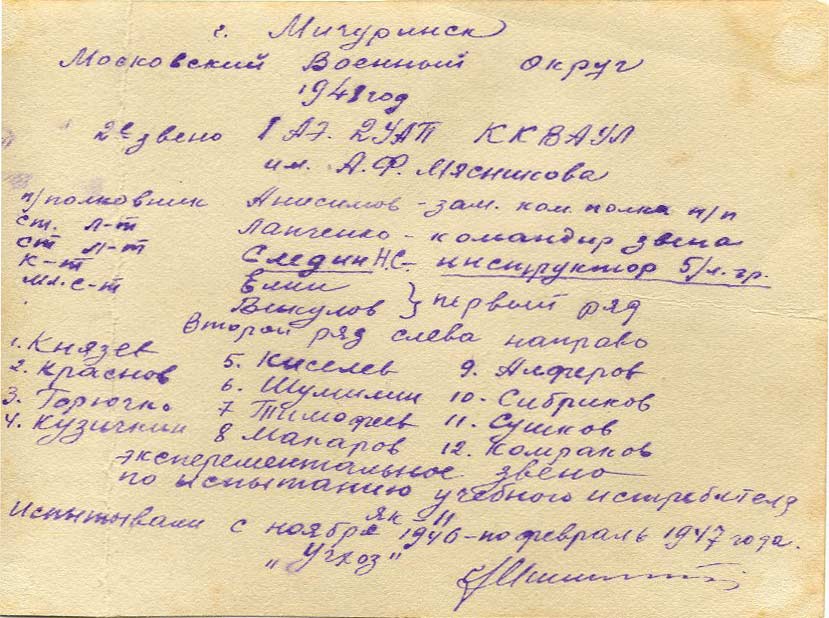 г. Мичуринск
Московский Военный округ
1948 год
2е звено 1 АЭ. 2УАП ККВАУЛ
им. А.Ф. Мясникова
п/полковник Анисимов - зам. ком. полка п/п
ст. л-т Лапченко - командир звена
ст л-т Следин Н.С. - инструктор 5/л. гр.
к-т Елин
мл. с-т Викулов } первый ряд
Второй ряд слева направо
1. Князев 5. Киселев 9. Алферов
2. Краснов 6. Шумилин 10. Сибриков
3. Горючко 7 Тимофеев 11. Сушков
4. Кузичкин 8 Макаров 12. Комраков
эксперементальное звено
по испытанию учебного истребителя
як - 11
Испытывали с ноября 1946 - по февраль 1947 года.
„Учхоз"